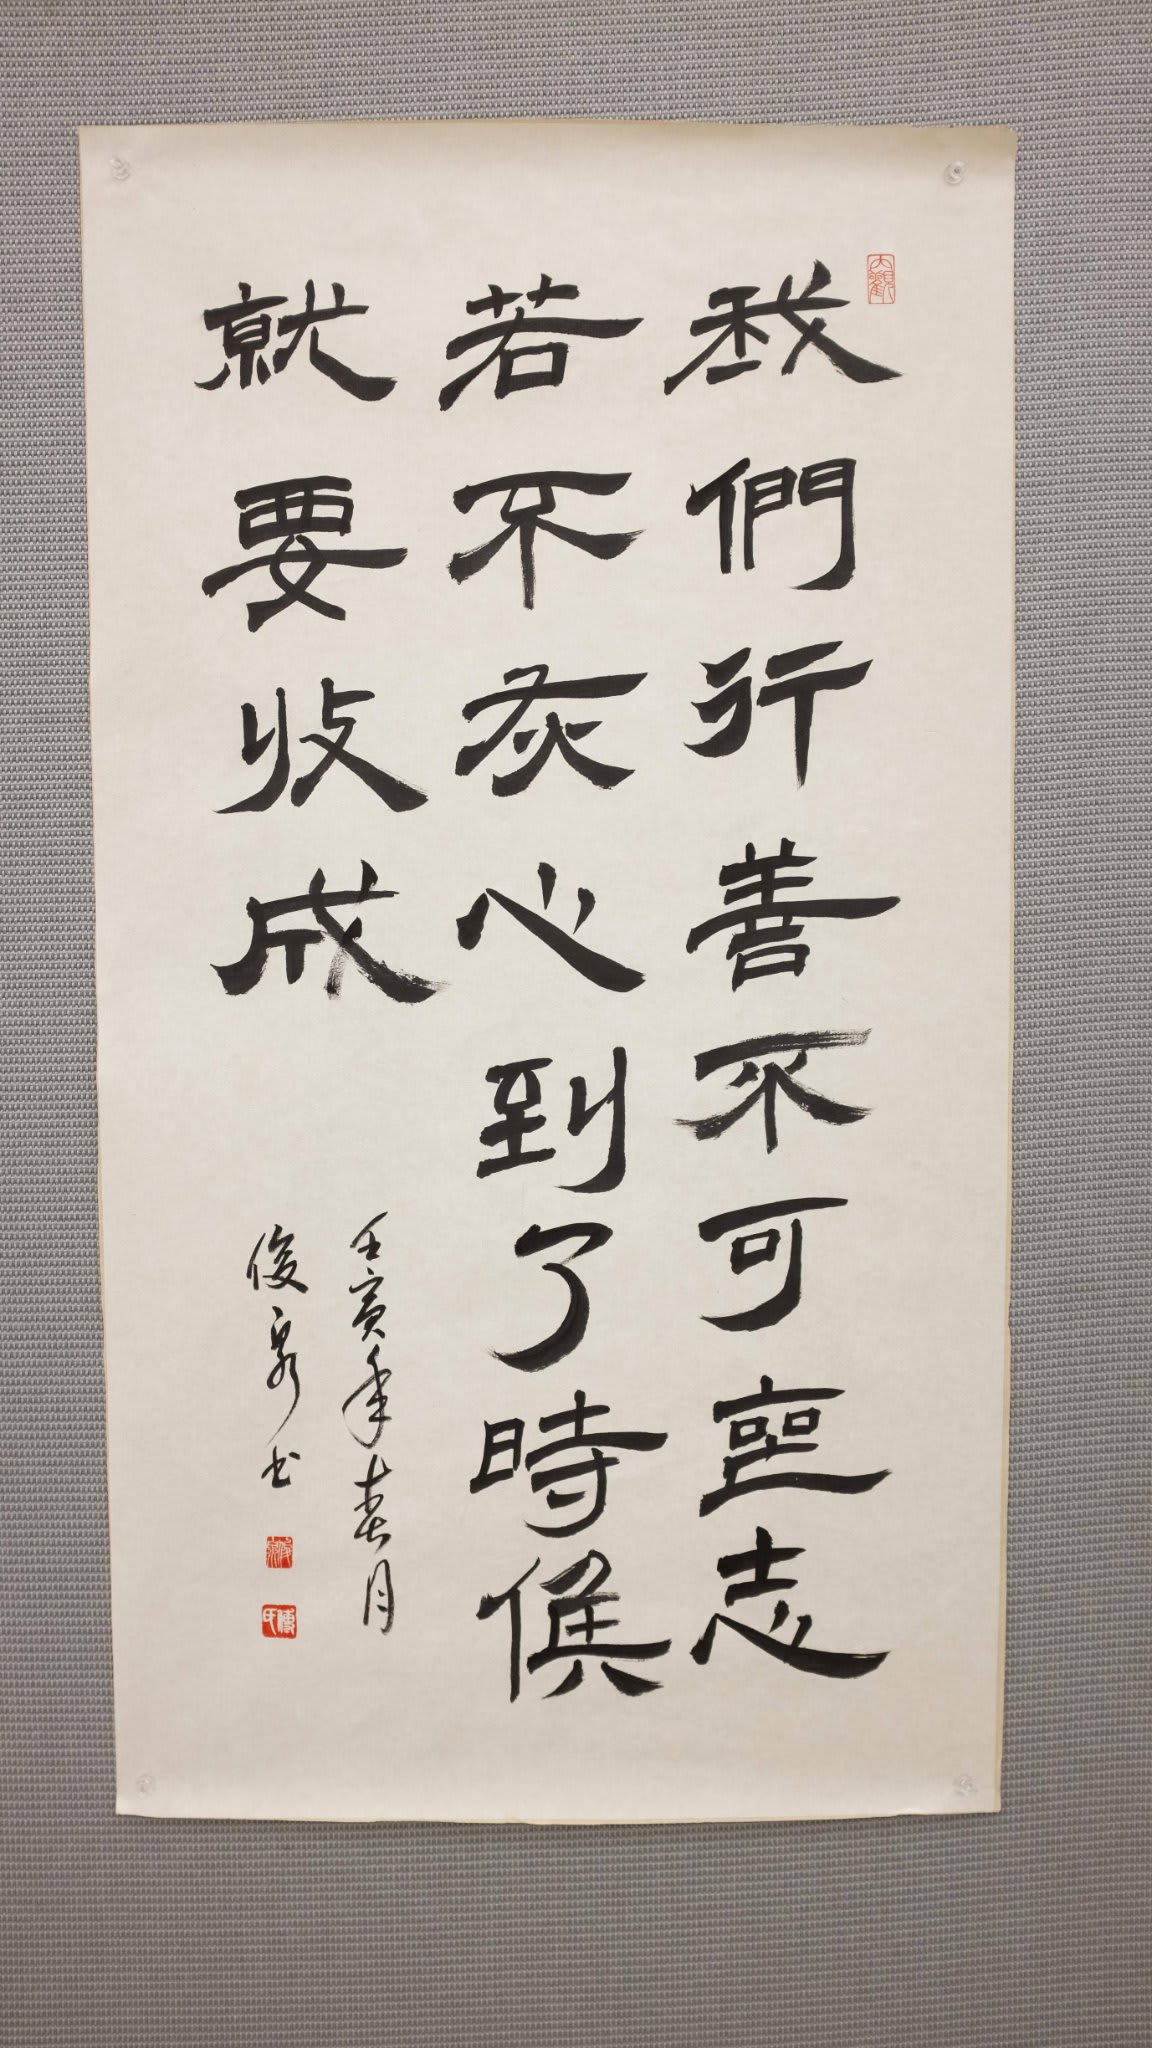 我們行善不可喪志
若不灰心到了時候
就要收成
壬寅年春月
俊泉书